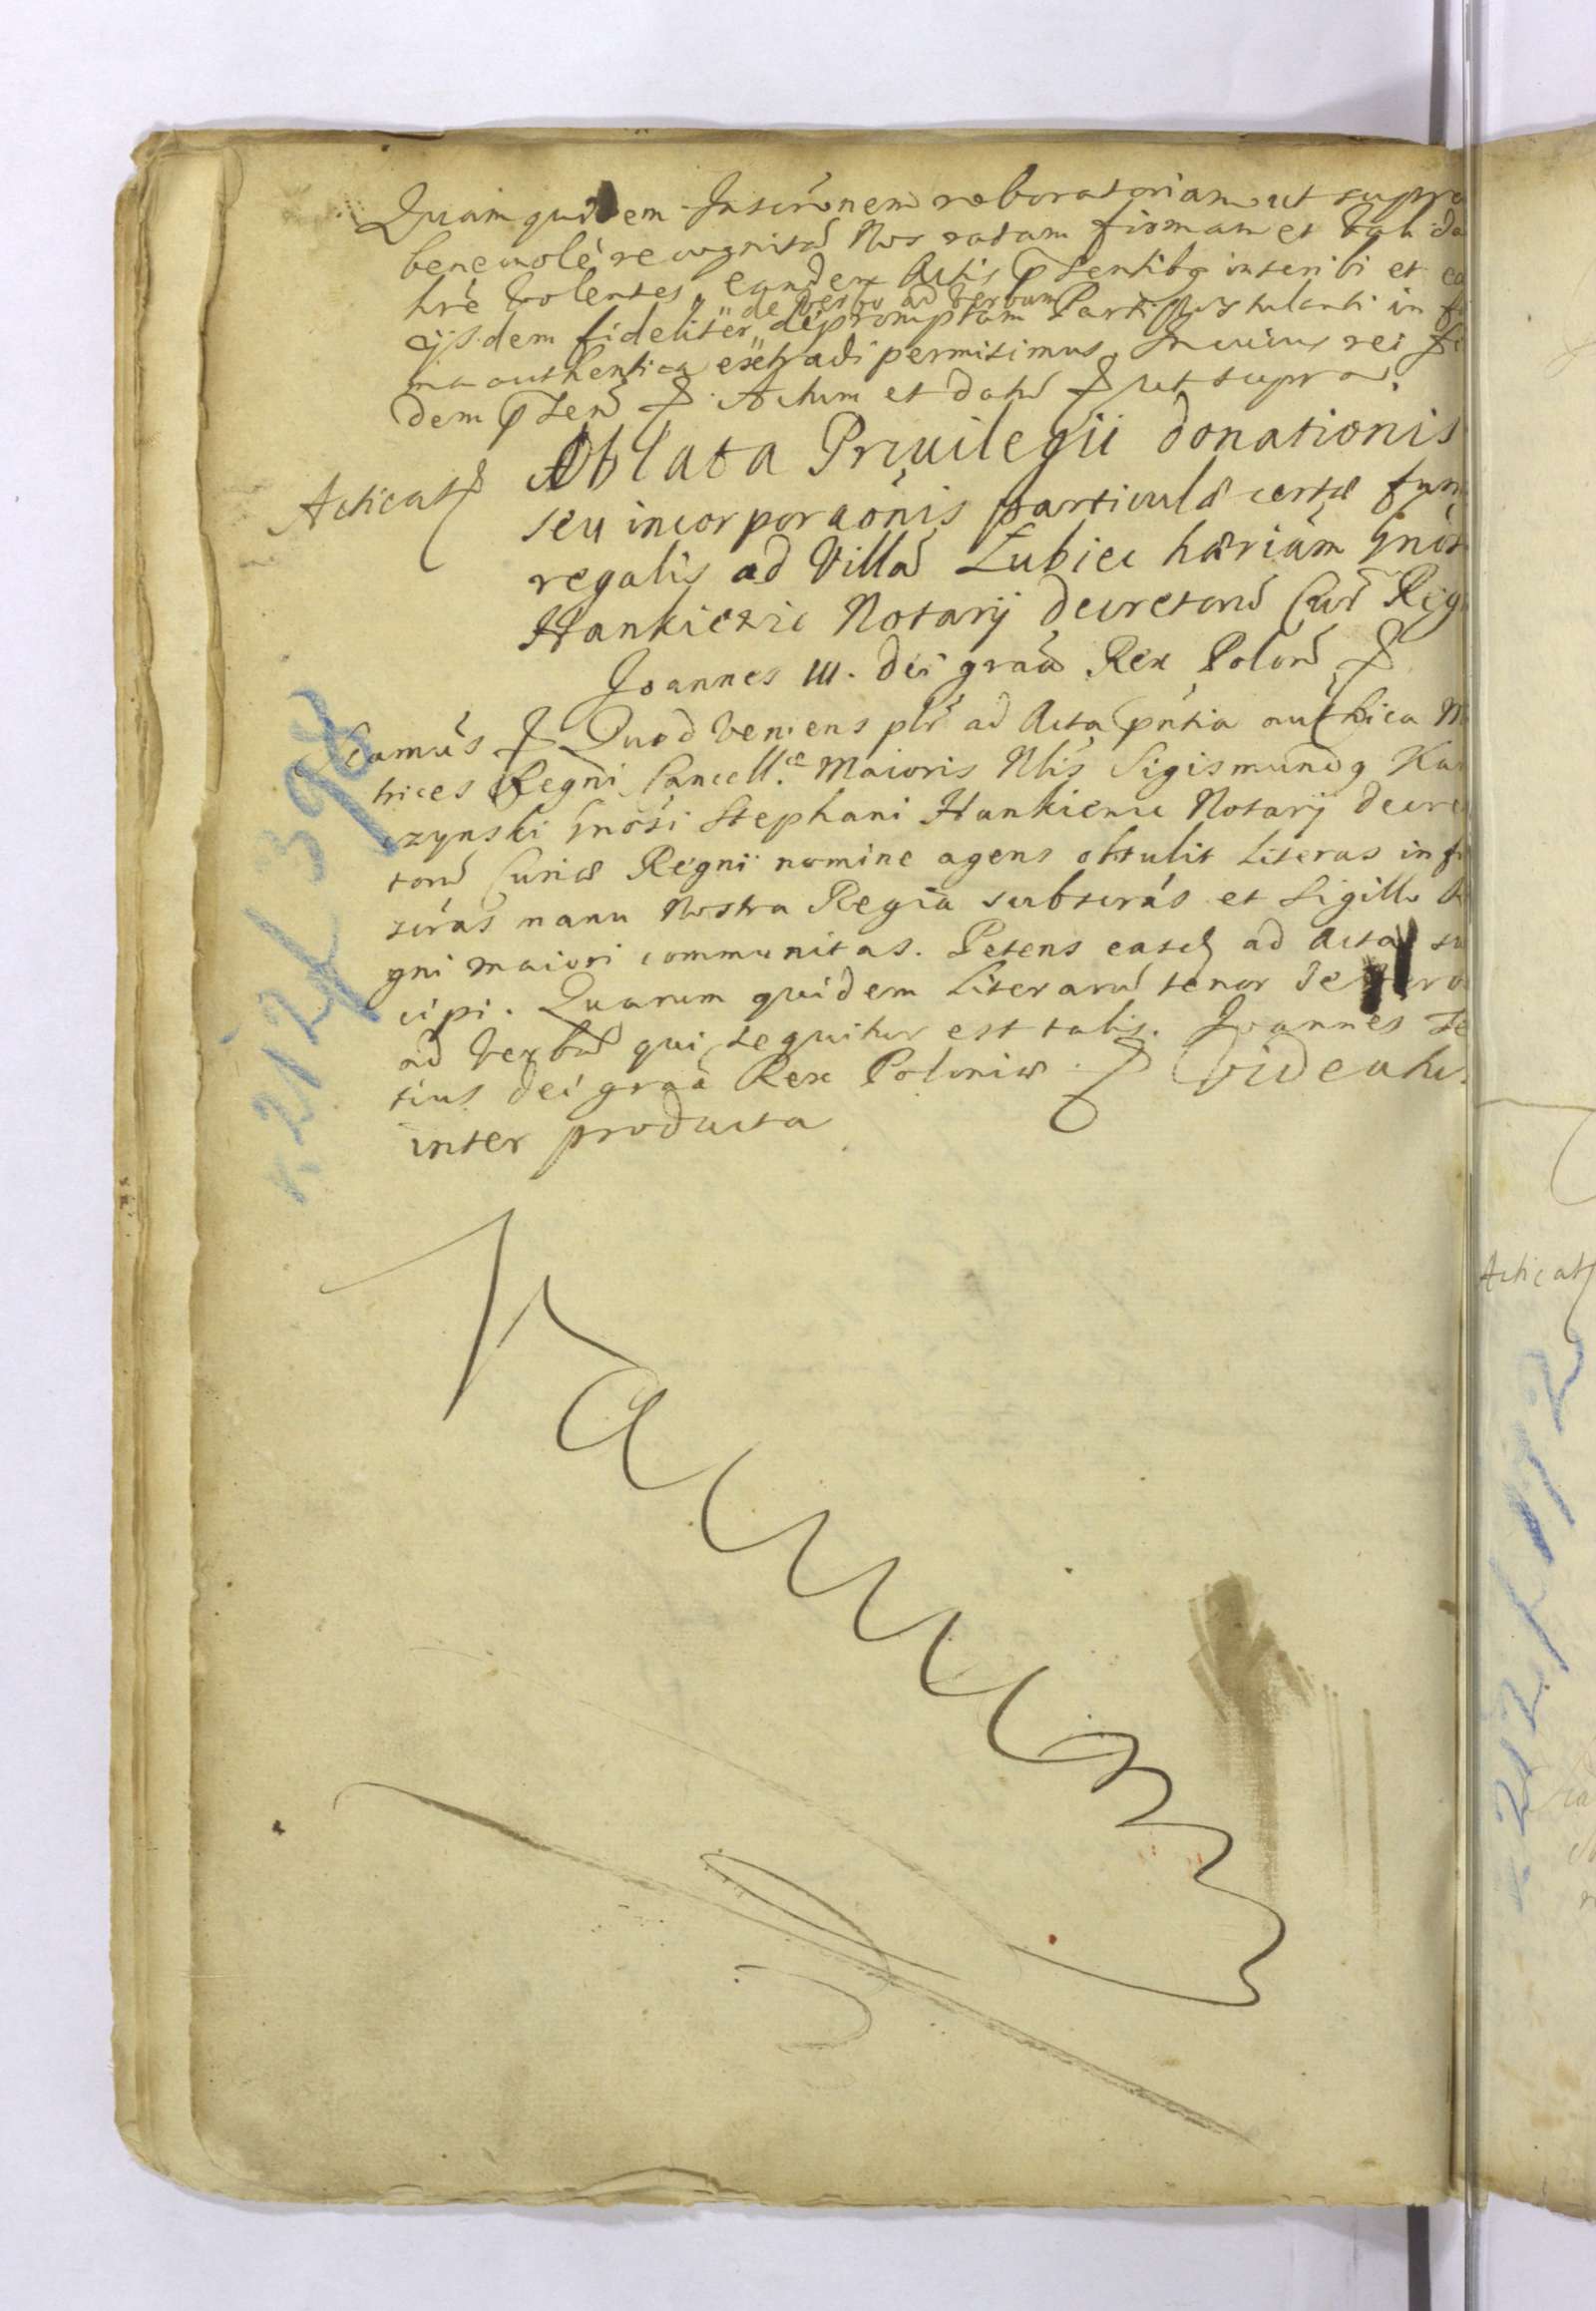 Quam quidem Inscrōnem roboratoriam ut supra
benevole recognitā Nos ratam firmam et Vali da
hrē Volentes, eandem Actis pn̄tentibq inscribi et ea
ijsdem fideliter de verbo ad verbum depromptam Parti Postulanti in fo
ma authentica extradi permisimus. In cuius rei fi
dem pn̄sen Actum et datū ut supra.
Acticat
Oblata Priuilegii donationis
seu incorporaōnis particulæ certæ fun
regalis ad Villā Łubiec hæriām Gnōs
Hankiewic Notarij decretorū Cur Reg
Joannes III. Dei graā Rex Polonō
camūs Quod Veniens plr ad Acta pn̄tia authica M
trices Regni Cancell.æ Maioris Nlis Sigismundq Ka
czynski Gnōsi Stephani Hankiewic Notarij decre
torū Curiæ Regni nomine agens obtulit Literas in fr
scrās manu Nostra Regia subscrās et Sigillo Re
gni maiori communitas. Petens easd ad Acta su
cipi. Quarum quidem Literarū tenor de verbo
ad Verbū qui sequitur est talis. Joannes Te
tius Dei graā Rex Poloniæ Videatur
inter producta
k. 212 f 398
Vacuum
Acticat
k 212 f